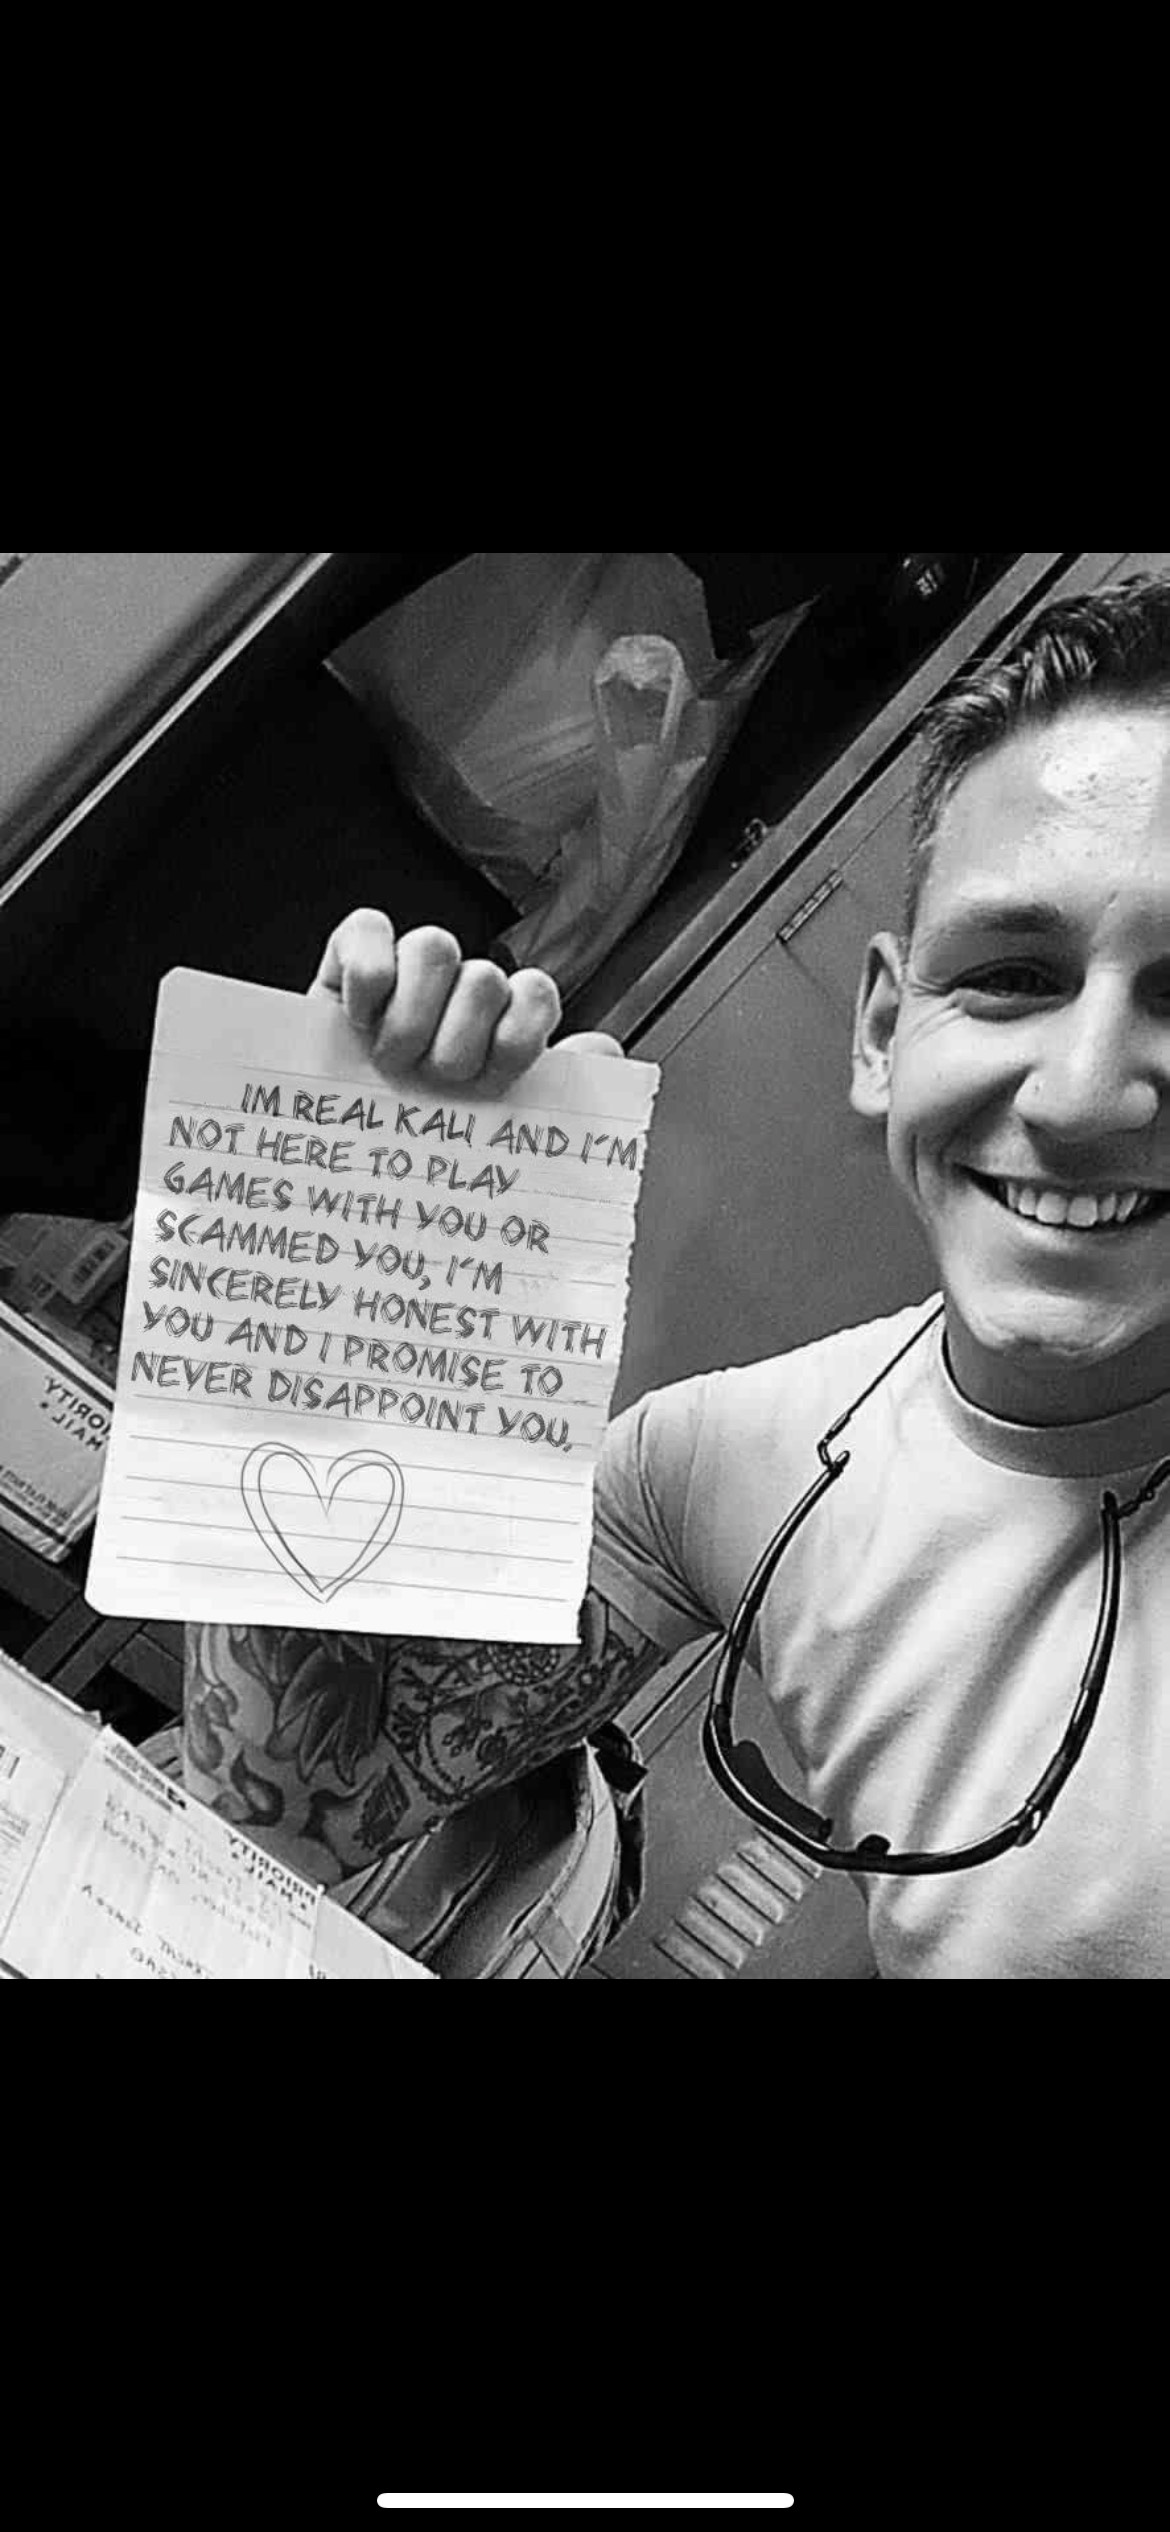 IM REAL KALI AND I'M
NOT HERE TO PLAY
GAMES WITH YOU OR
SCAMMED YOU, I'M
SINCERELY HONEST WITH
YOU AND I PROMISE TO
NEVER DISAPPOINT YOU.
PRIORITY
MAIL
PRIORITY
MAIL